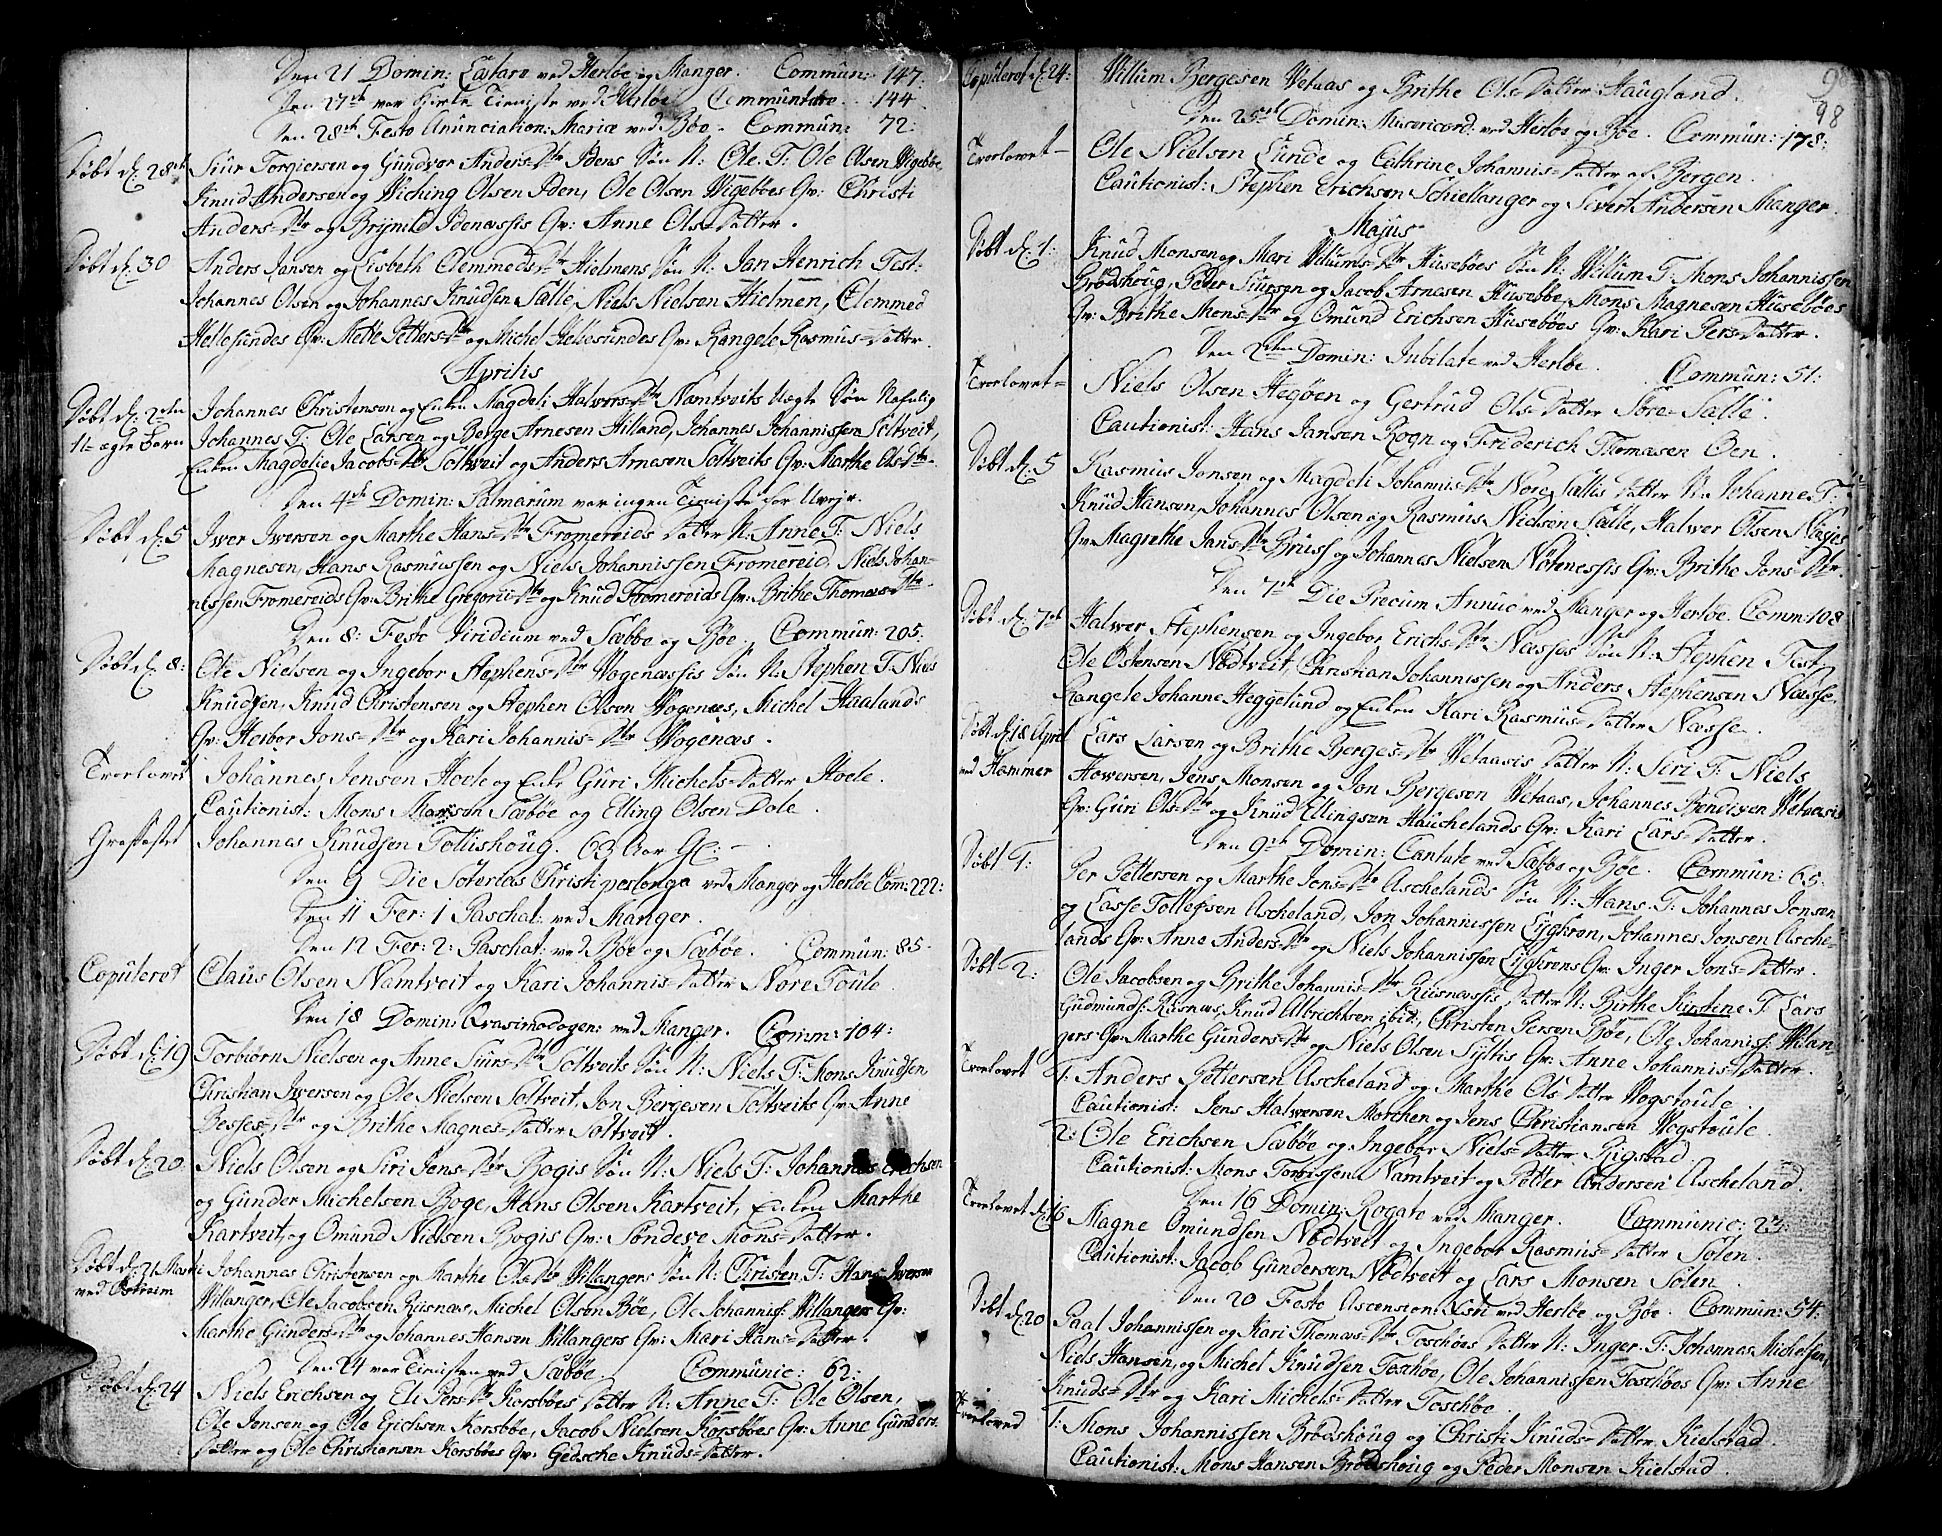 Den 21 Domin: Lætare ved Herløe og Manger. Commun: 147:
Den 27de var Kirke Tieniste ved Herløe Communicere. 144
Den 28de Festo Anunciation: Mariæ ved Bøe. Commun: 72:
Døbt d: 28de Siur Torgiersen og Gundvor Anders=Dtr Idens Søn N: Ole. T: Ole Olsen Vigebøe,
Knud Andersen og Wiching Olsen Iden, Ole Olsen Wigebøes Qv: Christi
Anders=Dtr og Brynild Idenæssis Qv: Anne Ols=Datter.
Døbt d: 30 Anders Jansen og Lisbeth Clemmeds=Dtr Hielmens Søn N: Jan Henrich Test:
Johannes Olsen og Johannes Knudsen Sælle, Niels Nielsen Hielmen, Clemmed
Hellesundes Qv: Mette Petters=Dtr og Michel Hellesundes Qv: Rangele Rasmus=Datter.
Aprilis
Døbt d: 2den Johannes Christensen og Enken Magdeli Halvors=Dtr Namtveits Uægte Søn Nafnlig
U=ægte barn Johannes T: Ole Larsen og Berge Arnesen Hiland, Johannes Johannissen Soltveit,
Enken Magdelie Jacobs=Dtr Soltveit og Anders Arnesen Soltveits Qv: Marthe Ols=Dtr.
Den 4de Domin: Palmarum var ingen Tieniste for Uvejr.
Døbt d: 5 Iver Iversen og Marthe Hans=Dtr Fromereids Datter N: Anne T: Niels
Magnesen, Hans Rasmussen og Niels Johannissen Fromereid, Niels Johan-
nissen Fromereids Qv: Brithe Gregorii=Dtr og Knud Fromereids Qv: Brithe Thomæs=Dtr.
Den 8: Festo Viridium ved Sæbøe og Bøe. Commun: 205:
Døbt d: 8: Ole Nielsen og Ingebor Stephens=Dtr Wogenæssis Søn N: Stephen T: Niels
Knudsen, Knud Christensen og Stephen Olsen Wogenæs, Michel Haalands
Qv: Herbor Jons=Dtr og Kari Johannis=Dtr Wogenæs.
Trorlovet Johannes Jensen Hoele og Enke Guri Michels=Datter Hoele.
Cautionist: Mons Monsen Sæbøe og Elling Olsen Dole.
Grafæstet Johannes Knudsen Tollishoug. 63 Aar Gl: -
Den 9 Die Soterias Christi ved Manger og Herløe Com: 222:
Den 11 Fer: 1 Paschat: ved Manger.
Den 12 Fer: 2: Paschat: ved Bøe og Sæbøe. Commun: 85.
Copuleret Claus Olsen Namtveit og Kari Johannis=Datter Nore Toule.
Den 18 Domin: Qvasimodogen: ved Manger. Comm: 104:
Døbt d: 19 Torbiørn Nielsen og Anne Siurs=Dtr Soltveits Søn N: Niels T: Mons Knudsen
Christian Iversen og Ole Nielsen Soltveit, Jon Bergesen Soltveits Qv: Anne
Besses=Dtr og Brithe Magnes=Datter Soltveit.
Døbt d: 20 Niels Olsen og Siri Jens=Dtr Bogis Søn N: Niels T: Johannes Erichsen
og Gunder Michelsen Boge, Hans Olsen Kartveit, Enken Marthe
Kartveit, og Omund Nielsen Bogis Qv: Sondeve Mons=Datter.
Døbt d: 21 Marti Johannes Christensen og Marthe Ols=Dtr Willangers Søn N: Christen T: Hans Iversen
Willanger, Ole Jacobsen Riisnæs, Michel Olsen Bøe, Ole Johanniss: Willangers Qv:
Marthe Gunders=Dtr og Johannes Hansen Willangers Qv: Mari Hans=Datter.
Den 24 var Tienisten ved Sæbøe. Communic: 62:
Døbt d: 24 Niels Erichsen og Eli Pers=Dtr Korsbøes Datter N: Anne T: Ole Olsen,
Ole Jensen og Ole Erichsen Korsbøe, Jacob Nielsen Korsbøes Qv: Anne Gunders=
Datter og Ole Christiansen Korsbøes Qv: Gedsche Knuds=Datter.
98
Copuleret d: 24: Willum Bergesen Vetaas og Brithe Ols=Datter Haugland.
Den 25de Domin: Misericord: ved Herløe og Bøe. Commun: 178:
Trorlovet Ole Nielsen Lunde og Cathrine Johannis=Datter af Bergen.
Cautionist: Stephen Erichsen Schiellanger og Sivert Andersen Manger.
Majus
Døbt d: 1: Knud Monsen og Mari Willums=Dtr Husebøes Søn N: Willum T: Mons Johannissen
Brodshoug, Peder Siursen og Jacob Arnesen Husebøe, Mons Magnesen Husebøes
Qv: Brithe Mons=Dtr og Omund Erichsen Husebøes Qv: Kari Pers=Datter.
Den 2den Domin: Jubilate ved Herløe. Commun: 51:
Trorlovet Niels Olsen Hegøen og Gertrud Ols=Datter Søre=Sælle.
Cautionist: Hans Jansen Rogn og Friderich Thomæsen Øen.
Døbt d: 5 Rasmus Jonsen og Magdeli Johannis=Dtr Nore Sællis Datter N: Johanne T:
Knud Hansen, Johannes Olsen og Rasmus Nielsen Sælle, Halwer Olsen
Qv: Magrethe Jans=Dtr og Johannes Nielsen Nøtenessis Qv: Brithe Jons=Dtr.
Den 7de Die Precum Annuo ved Manger og Herløe. Comm: 108
Døbt d: 7de Halwer Stephensen og Ingebor Erichs=Dtr Næsses Søn N: Stephen Test:
Ole Ostensen Nodtveit, Christian Johannissen og Anders Stephensen Næsse,
Rangele Johanne Heggelund og Enken Kari Rasmus=Datter Næsse.
Døbt d: 18 April Lars Larsen og Brithe Berges=Dtr Wetaasis Datter N: Siri T: Niels
ved Hammer Howersen, Jens Monsen og Jon Bergesen Wetaas, Johannes Bendixen Wetaasis
Qv: Guri Ols=Dtr og Knud Ellingsen Hauchelands Qv: Kari Lars=Datter.
Den 9de Domin: Cantate ved Sæbøe og Bøe. Commun: 65:
Døbt 1: Per Pettersen og Marthe Jons=Dtr Aschelands Søn N: Hans. T: Johannes Jonsen
og Lasse Tollefsen Ascheland, Jon Johannissen Lyghren, Johannes Jonsen Asche-
lands Qv: Anne Anders=Dtr og Niels Johannissen Lyghrens Qv: Inger Jons=Datter.
Døbt 2: Ole Jacobsen og Brithe Johannis=Dtr Riisnæssis Datter N: Birthe Kirstine T: Lars
Gudmunds: Riisnæs, Knud Albrechtsen ibid:, Christen Persen Bøe, Ole Johanniss: Wilan-
gers Qv: Marthe Gunders=Dtr og Niels Olsen Syltis Qv: Anne Johannis=Datter.
Trorlovet 1: Anders Pettersen Ascheland og Marthe Ols Datter Wogstoule.
Cautionist: Jens Halwersen Morchen og Jens Christiansen Wogstoule.
2: Ole Erichsen Sæbøe og Ingebor Niels=Datter Rigstad.
Cautionist: Mons Torrissen Namtveit og Petter Andersen Ascheland.
Den 16 Domin: Rogate ved Manger. Communic: 23:
Trorlovet d: 16 Magne Omundsen Nodtveit og Ingebor Rasmus=Datter Solen.
Cautionist: Jacob Gundersen Nodtveit og Lars Monsen Solen.
Den 20 Festo Ascension: Xsti ved Herløe og Bøe. Commun: 54:
Døbt d: 20 Paal Johannissen og Kari Thomæs=Dtr Toschøes Datter N: Inger. T: Johannes Michelsen,
Niels Hansen, og Michel Knudsen Toschøe, Ole Johannissen Toschøes Qv: Anne
Knuds=Dtr og Kari Michels=Datter Toschøe.
Trorloved 1: Mons Johannissen Brodshoug og Christi Knuds=Datter Kielstad.
Cautionist: Mons Hansen Brodshoug og Peder Monsen Kielstad.